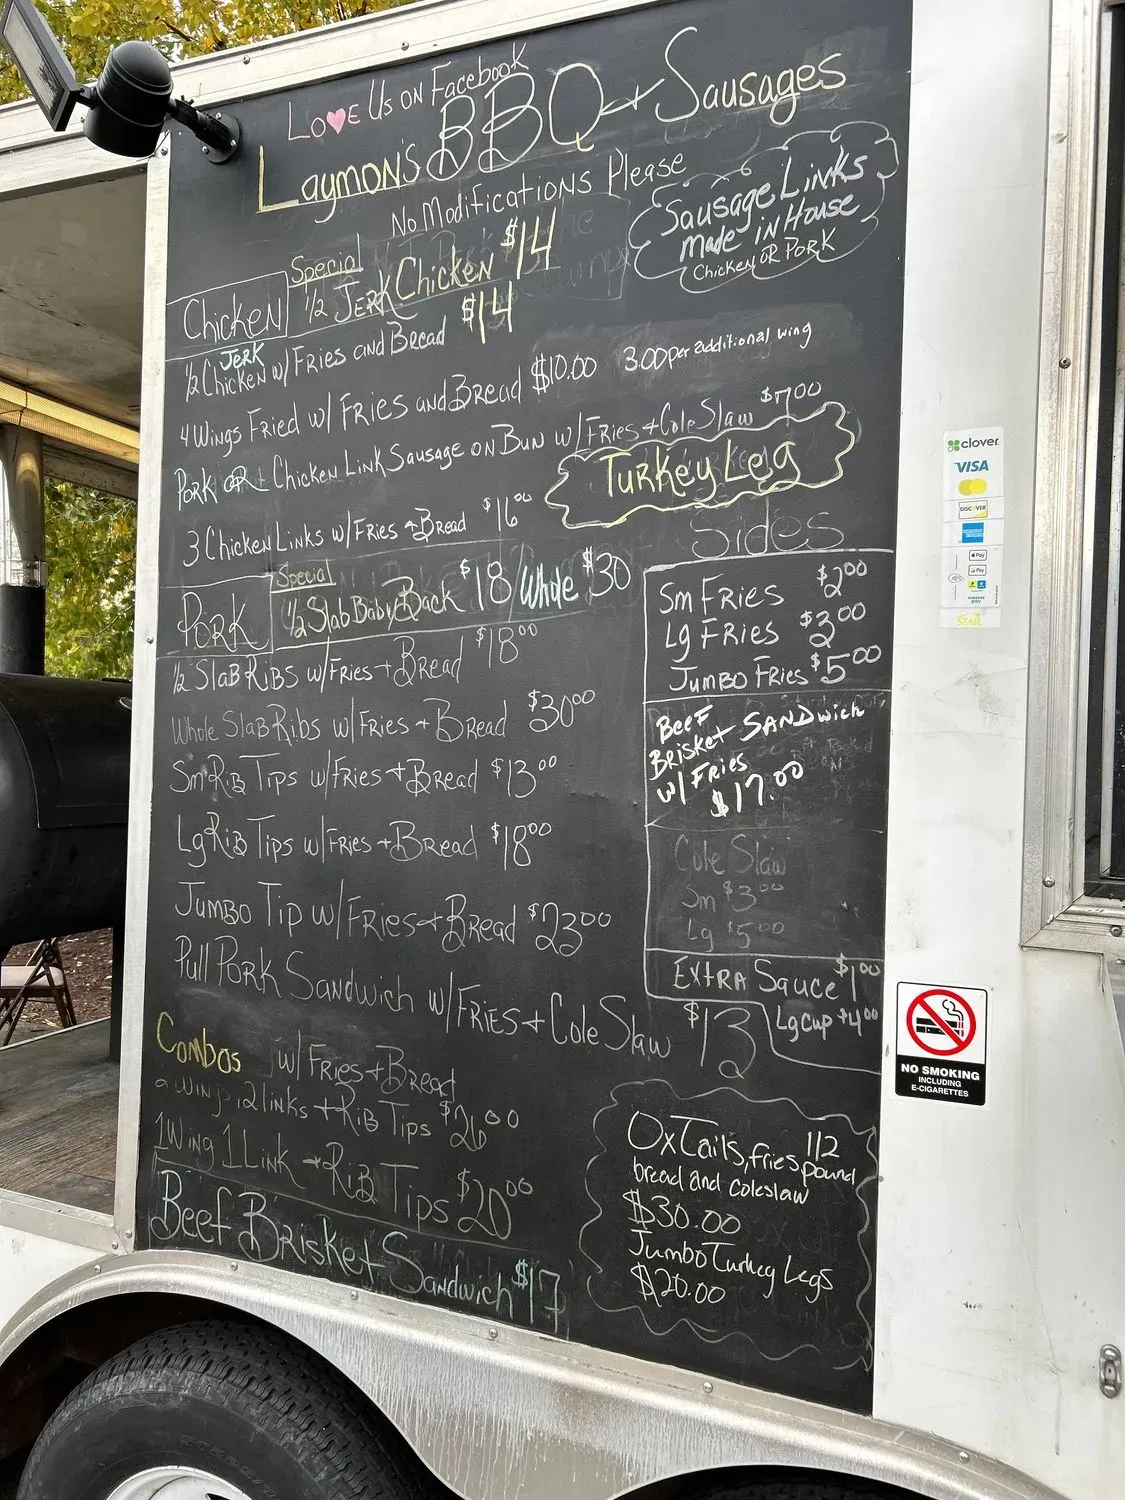 LOVE US ON Facebook
LAYMON'S BBQ + SAUSAGES
No ModificationS Please
Sausage Links
made in House
Chicken OR PORK
Special
Chicken
1/2 JERK Chicken $14
JERK
1/2 Chicken w/ Fries and Bread $14
4 Wings Fried w/ Fries and Bread $10.00 3.00 per additional wing
PORK OR Chicken Link Sausage on Bun w/ Fries + Cole Slaw $7.00
Turkey Leg
3 Chicken Links w/ Fries + Bread $16.00
Sides
Special
PORK
1/2 Slab Baby Back $18 / Whole $30
1/2 Slab Ribs w/ Fries + Bread $18.00
Whole Slab Ribs w/ Fries + Bread $30.00
Sm Rib Tips w/ Fries + Bread $13.00
Lg Rib Tips w/ Fries + Bread $18.00
Jumbo Tip w/ Fries + Bread $23.00
Pull Pork Sandwich w/ Fries + Cole Slaw $13
Combos w/ Fries + Bread
links + Rib Tips $26.00
1 Wing 1 Link + Rib Tips $20.00
Beef Brisket Sandwich $17
Sm Fries $2.00
Lg Fries $3.00
Jumbo Fries $5.00
Beef
Brisket Sandwich
w/ Fries
$17.00
Cole Slaw
Sm $3.00
Lg $5.00
Extra Sauce $1.00
Lg Cup $4.00
OxTails, fries 1/2 pound
bread and coleslaw
$30.00
Jumbo Turkey Legs
$20.00
clover
VISA
DISCOVER
Pay
G Pay
STAR
NO SMOKING
INCLUDING
E-CIGARETTES